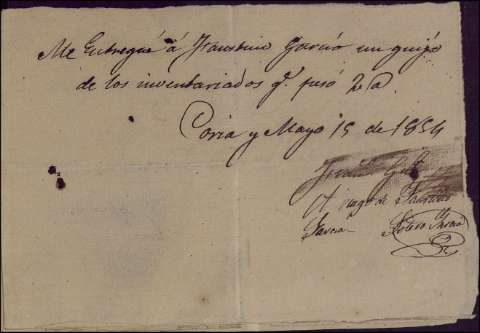 Me Entregué á Faustino García un guijo
de los inventariados q.e pesó 2 @
Coria y Mayo 15 de 1854
A ruego de Faustino
García